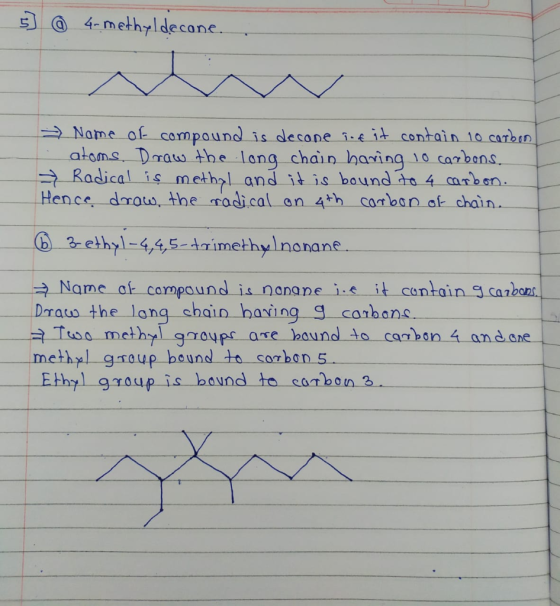 5] ⓐ 4-methyldecane.
⇒ Name of compound is decane i.e it contain 10 carbon
atoms. Draw the long chain having 10 carbons.
⇒ Radical is methyl and it is bound to 4 carbon.
Hence, draw, the radical on 4th carbon of chain.
ⓑ 3-ethyl-4,4,5-trimethylnonane.
⇒ Name of compound is nonane i.e it contain 9 carbons.
Draw the long chain having 9 carbons.
⇒ Two methyl groups are bound to carbon 4 and one
methyl group bound to carbon 5.
Ethyl group is bound to carbon 3.